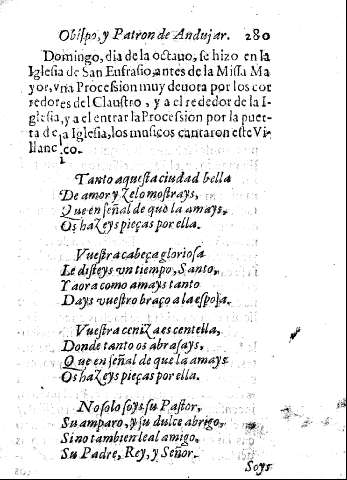 Obiſpo, y Patron de Andujar. 280
Domingo, dia de la octaua, ſe hizo en la
Igleſia de San Eufraſio, antes de la Miſſa Ma
yor, vna Proceſsion muy deuota por los cor
redores del Clauſtro, y a el rededor de la I-
gleſia, y a el entrar la Proceſsion por la puer-
ta de la Igleſia, los muſicos cantaron eſte Vi-
llancico.
Tanto aqueſta ciudad bella
De amor y zelo moſtrays,
Que en ſeñal de que la amays,
Os hazeys pieças por ella.
Vueſtra cabeça glorioſa
Le diſteys vn tiempo, Santo,
Y aora como amays tanto
Days vueſtro braço a la eſpoſa.
Vueſtra ceniza es centella,
Donde tanto os abraſays,
Que en ſeñal de que la amays
Os hazeys pieças por ella.
No ſolo ſoys ſu Paſtor,
Su amparo, y ſu dulce abrigo,
Sino tambien leal amigo,
Su Padre, Rey, y Señor.
Soys